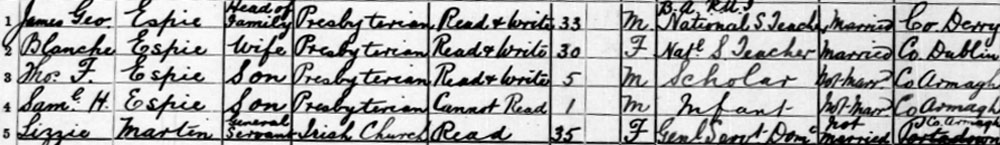 1 James Geo Espie Head of Family Presbyterian Read & Write 33 M B.A. R.U.I National S. Teacher Married Co. Derry
2 Blanche Espie Wife Presbyterian Read & Write 30 F Natl S Teacher Married Co. Dublin
3 Thos. F. Espie Son Presbyterian Read & Write 5 M Scholar Not Marr. Co Armagh
4 Saml H. Espie Son Presbyterian Cannot Read 1 M Infant Not Marr. Co Armagh
5 Lizzie Martin General Servant Irish Church Read 35 F Genl Servt Dom. Not Married Co. Armagh Portadown